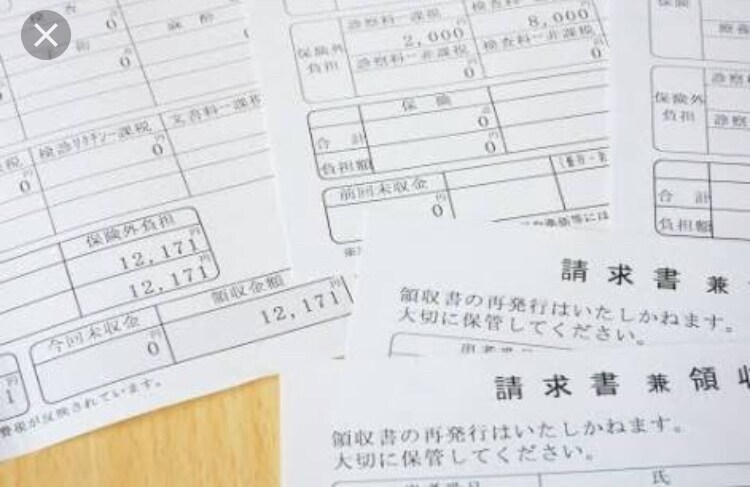 0
0
0
0
課税
検診ワクチン-課税
文書料-課税
0
0
保険外負担
円
12,171
12,171
今回未収金
領収金額
円
0
円
12,171
費税が反映されています。
保険外
負担
診察料-課税
円
2,000
検査料-課税
円
8,000
診察料-非課税
円
0
検査料-非課税
円
0
保険
合計
円
0
負担額
円
0
前回未収金
円
0
保険外
負担
診察
合計
負担額
請求書兼
領収書の再発行はいたしかねます。
大切に保管してください。
患者番号
請求書兼領収
領収書の再発行はいたしかねます。
大切に保管してください。
患者番号
氏